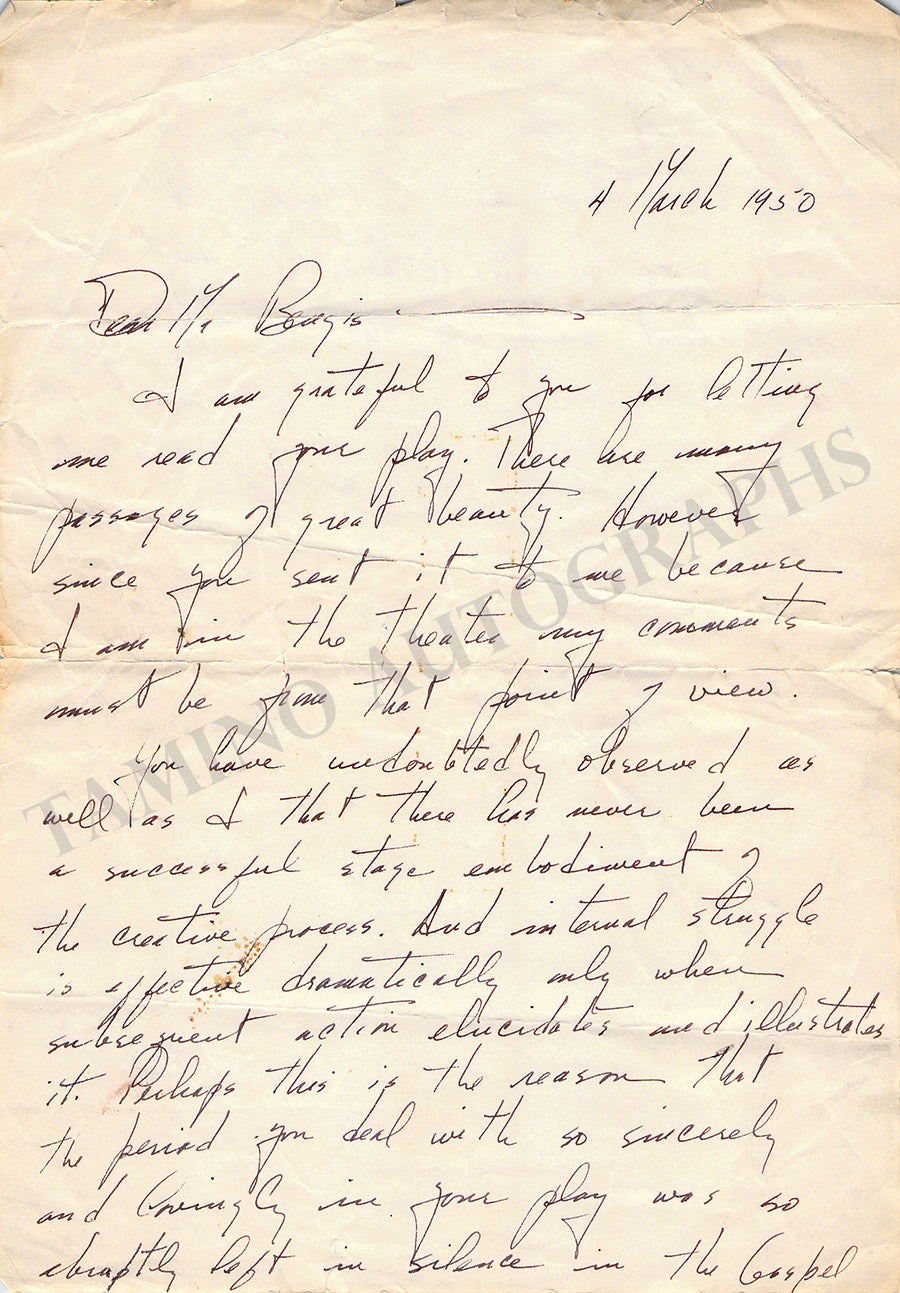 4 March 1950
Dear Mr Bengis
I am grateful to you for letting
me read your play. There are many
passages of great beauty. However
since you sent it to me because
I am in the theater my comments
must be from that point of view.
You have undoubtedly observed as
well as I that there has never been
a successful stage embodiment of
the creative process. And internal struggle
is effective dramatically only when
subsequent action elucidates and illustrates
it. Perhaps this is the reason that
the period you deal with so sincerely
and lovingly in your play was so
abruptly left in silence in the Gospel
TAMINO AUTOGRAPHS